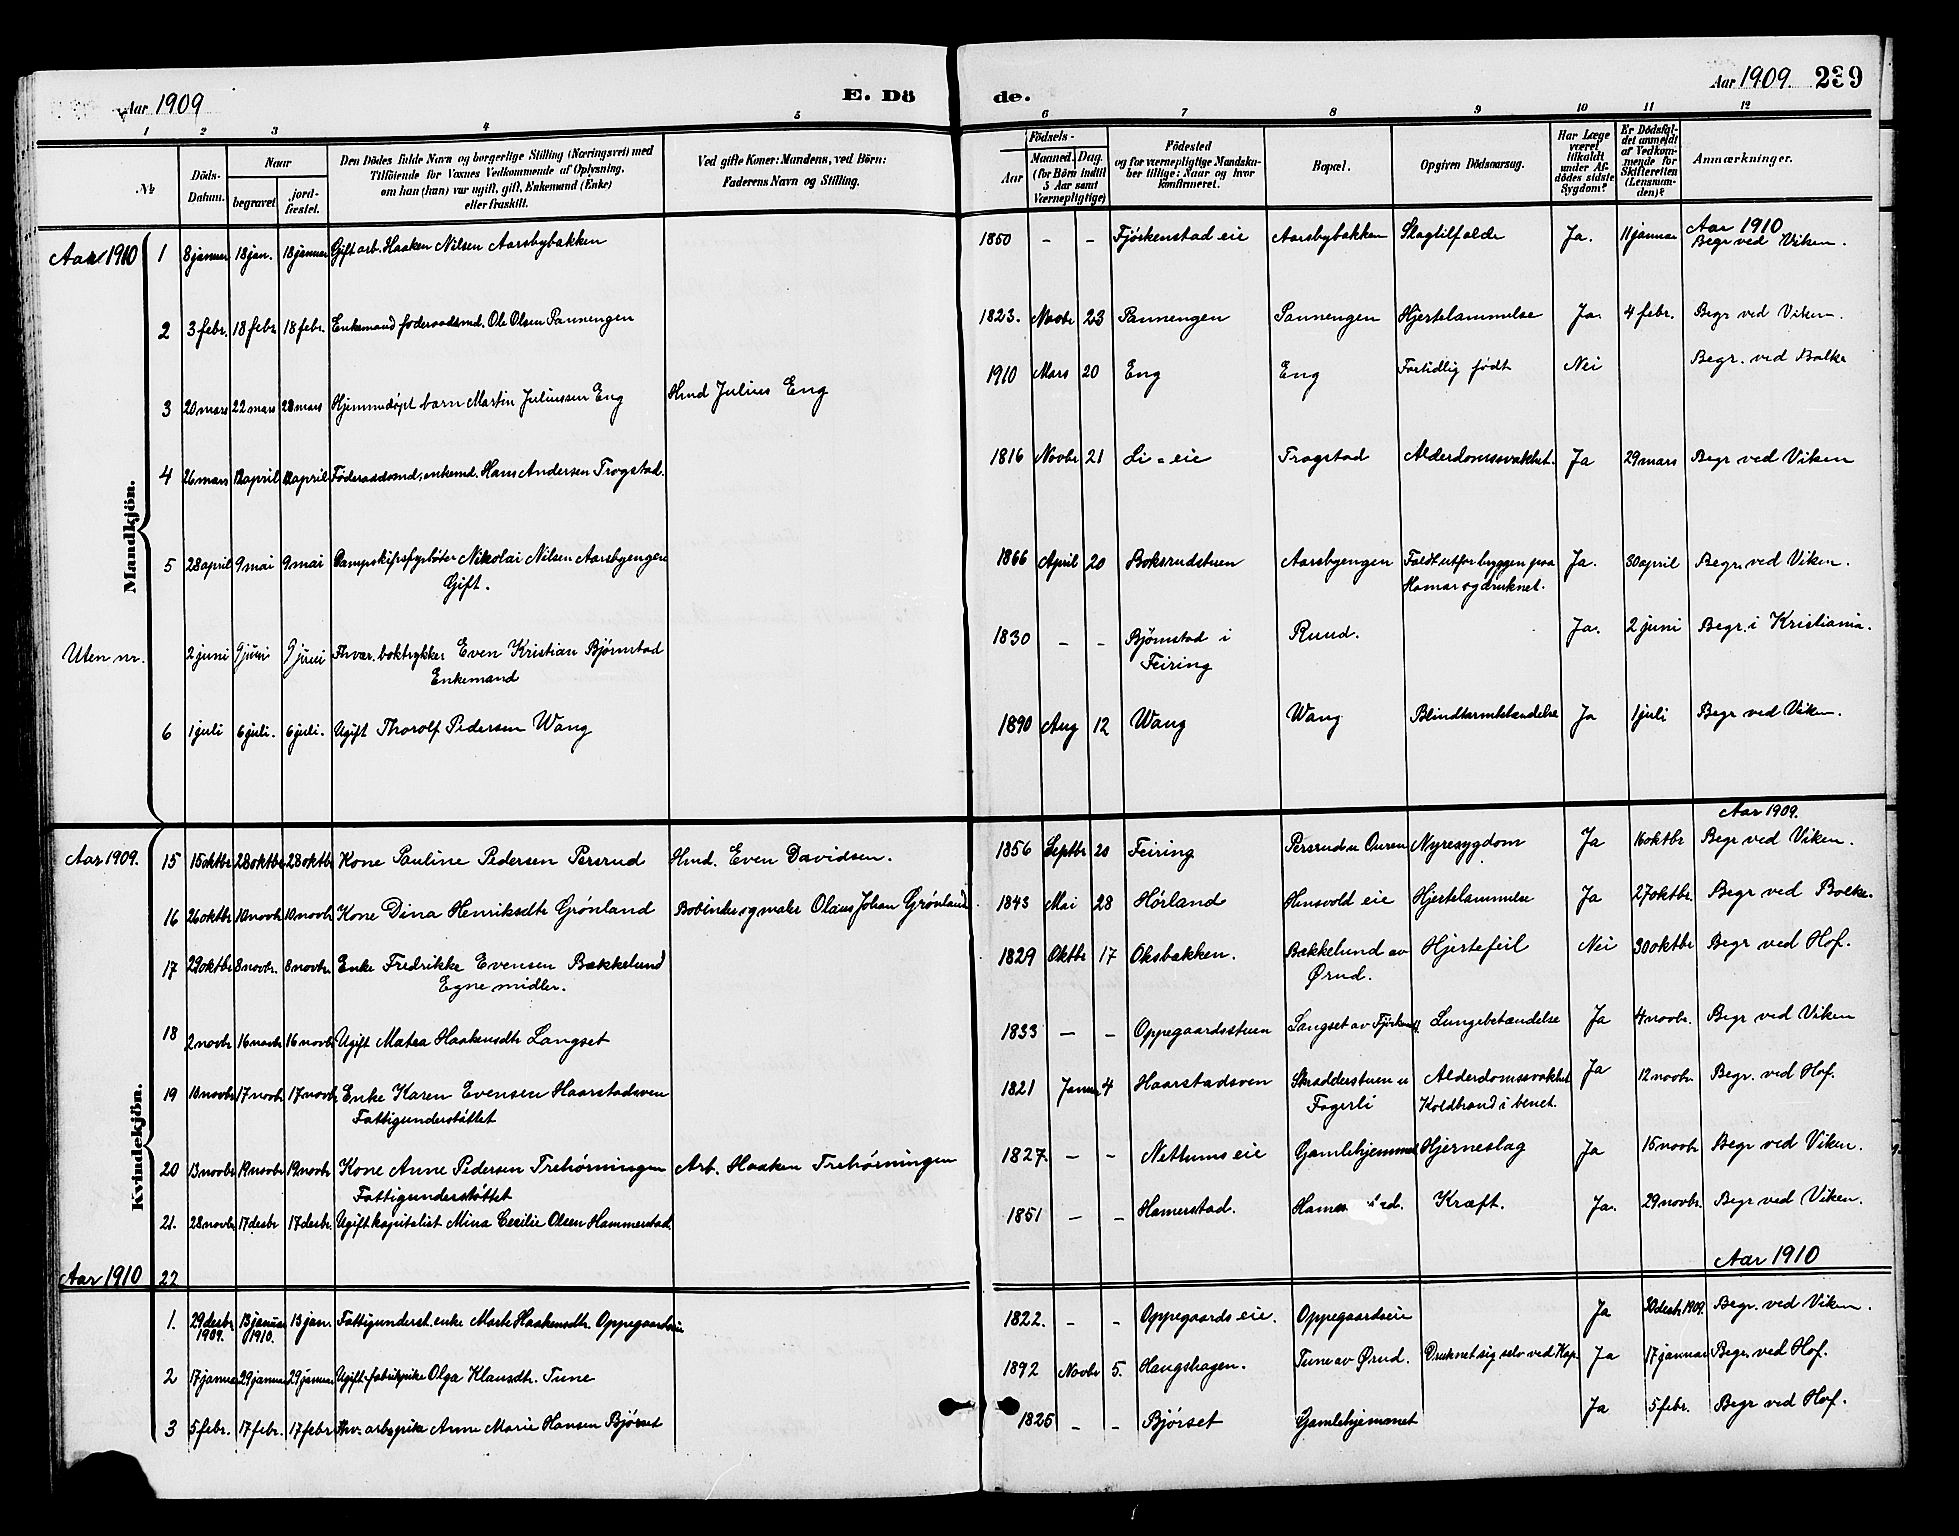 Aar 1909
E. Dö
de.
Aar 1909. 239
1 2 3 4 5 6 7 8 9 10 11 12
№
Döds-
Datum.
Naar
begravet
jord-
fæstet.
Den Dödes fulde Navn og borgerlige Stilling (Næringsvei) med
Tilföiende for Voxnes Vedkommende af Oplysning,
om han (hun) var ugift, gift, Enkemand (Enke)
eller fraskilt.
Ved gifte Koner: Mandens, ved Börn:
Faderens Navn og Stilling.
Födsels-
Aar
Maaned. Dag.
(for Börn indtil
5 Aar samt
Værnepligtige)
Födested
og for værnepligtige Mandska-
ber tillige: Naar og hvor
konfirmeret.
Bopæl.
Opgiven Dödsaarsag.
Har Læge
været
tilkaldt
under Af-
dödes sidste
Sygdom?
Er Dödsfal-
det anmeldt
af Vedkom-
mende for
Skifteretten
(Lensman-
den)?
Anmærkninger.
Mandkjön.
Aar 1910
Aar 1910
1 8 januar 18 jan. 18 januar Gift arb. Haaken Nilsen Aarsbybakken 1850 – – Fjørkenstad eie Aarsbybakken Slagtilfælde Ja. 11 januar Begr ved Viken.
2 3 febr. 18 febr 18 febr. Enkemand føderaadsmd. Ole Olsen Pannengen 1823. Novbr 23 Pannengen Pannengen Hjertelammelse Ja. 4 febr. Begr ved Viken.
3 20 mars 22 mars 28 mars Hjemmedøpt barn Martin Juliussen Eng Hmd Julius Eng 1910 Mars 20 Eng Eng Fortidlig født Nei Begr. ved Balke
4 26 mars 12 april 12 april Føderaadsmd, enkemd. Hans Andersen Trogstad. 1816 Novbr 21 Li - eie Trogstad Alderdomssvakhet. Ja 29 mars Begr ved Viken
5 28 april 9 mai 9 mai Dampskipsfyrbøter Nikolai Nilsen Aarsbyengen 1866 April 20 Boksrudstuen Aarsbyengen Faldt utfor bryggen paa Ja. 30 april Begr. ved Viken.
Gift. Hamar og druknet.
Uten nr. 2 juni 9 juni 9 juni Fhvær. boktrykker Even Kristian Bjørnstad 1830 – – Bjørnstad i Ruud. Ja. 2 juni Begr. i Kristiania.
Enkemand Feiring
6 1 juli 6 juli. 6 juli. Ugift Thorolf Pedersen Wang 1890 Aug 12 Wang Wang Blindtarmbetændelse Ja 1 juli Begr ved Viken.
Kvindekjön.
Aar 1909.
Aar 1909.
15 15 oktbr 28 oktbr 28 oktbr Kone Pauline Pedersen Persrud Hmd. Even Davidsen. 1856 Septbr 20 Feiring Persrud u Ouren Nyresygdom Ja 16 oktbr Begr ved Viken.
16 26 oktbr 10 novbr 10 novbr Kone Dina Henriksdtr Grønland Bøtinker og maler Olaus Johan Grønland 1843 Mai 28 Hørland Hensvold eie Hjertelammelse Ja 27 oktbr. Begr ved Balke.
17 29 oktbr 8 novbr. 8 novbr. Enke Fredrikke Evensen Bækkelund 1829 Oktbr 17 Oksbakken. Bækkelund av Hjertefeil Nei 30 oktbr Begr ved Hof.
Egne midler. Ørud.
18 2 novbr 16 novbr 16 novbr Ugift Matea Haakensdtr Langset 1833 – – Oppegaardsstuen Langset av Lungebetændelse Ja 4 novbr. Begr ved Viken
19 10 novbr 17 novbr 17 novbr Enke Karen Evensen Haarstadsven 1821 Januar 4 Haarstadsven Skrædderstuen u Alderdomssvakhet Ja 12 novbr. Begr. ved Hof.
Fattigunderstøttet Fagerli Koldbrand i benet.
20 13 novbr 19 novbr 19 novbr Kone Anne Pedersen Trehørningen Arb. Haaken Trehørningen 1827. – – Nettums eie Gamlehjemmet Hjerneslag Ja 15 novbr Begr ved Viken.
Fattigunderstøttet
21. 28 novbr 17 desbr 17 desbr. Ugift kapitalist Mina Cecilie Olsen Hammerstad 1851 – – Hamerstad. Kræft. Ja. 29 novbr. Begr ved Viken.
Aar 1910 22 Aar 1910
1. 29 desbr 13 januar 13 jan. Fattigunderst. enke Marte Haakensdtr. Oppegaardseie 1822. – – Oppegaards eie. Oppegaardseie Ja 30 desbr. 1909. Begr. ved Viken.
1909. 1910.
2 17 januar 29 januar 29 januar Ugift fabrikpike Olga Klausdtr. Tune 1892 Novbr 5. Haugshagen. Tune av Ørud. Druknet sig selv ved Kap. Ja 17 januar Begr. ved Hof.
3 5 febr. 17 febr. 17 febr Fhv. arb. pike Anne Marie Hansen Bjørset 1825 – – Bjørset Gamlehjemmet Ja 5 febr. Begr ved Hof.